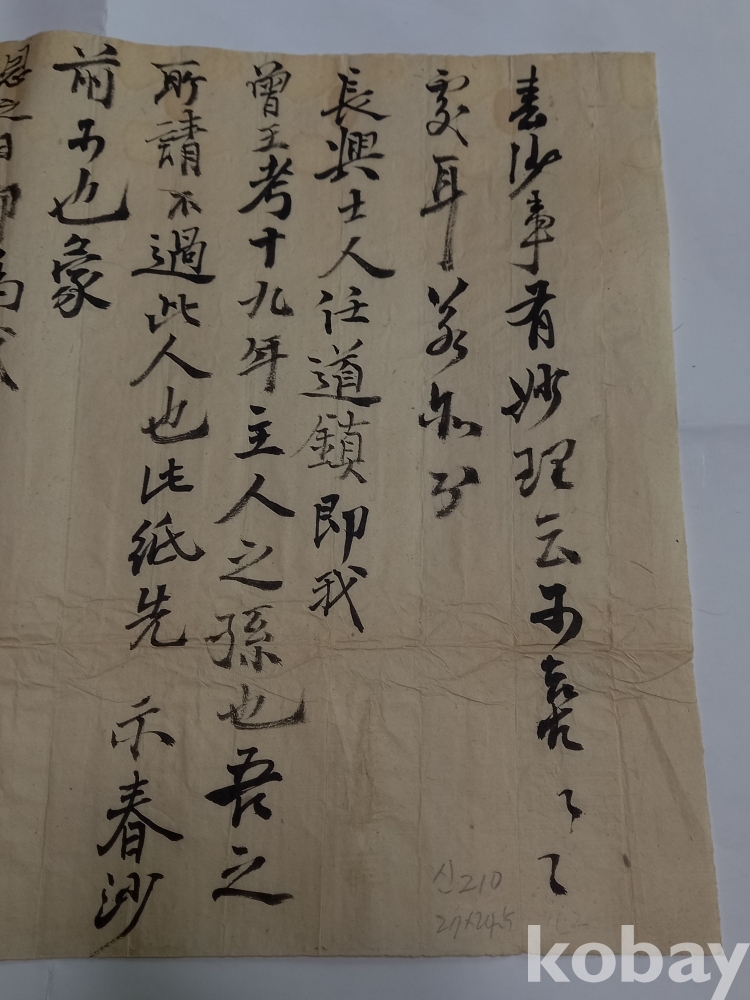 春沙事有妙理云可喜〻〻
處耳若
長興士人任道鎭即我
曾王考十九年主人之孫也吾之
所請不過此人也此紙先 示春沙
前可也象
之日即
신210
kobay